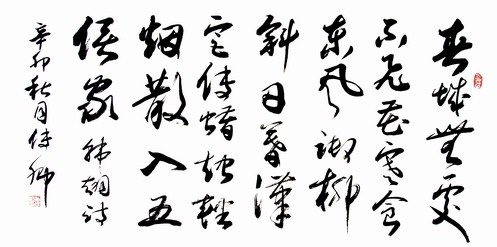 春城無處
不飛花寒食
東風御柳
斜日暮漢
宫傳蠟燭輕
烟散入五
侯家 韩翃诗
辛卯秋月